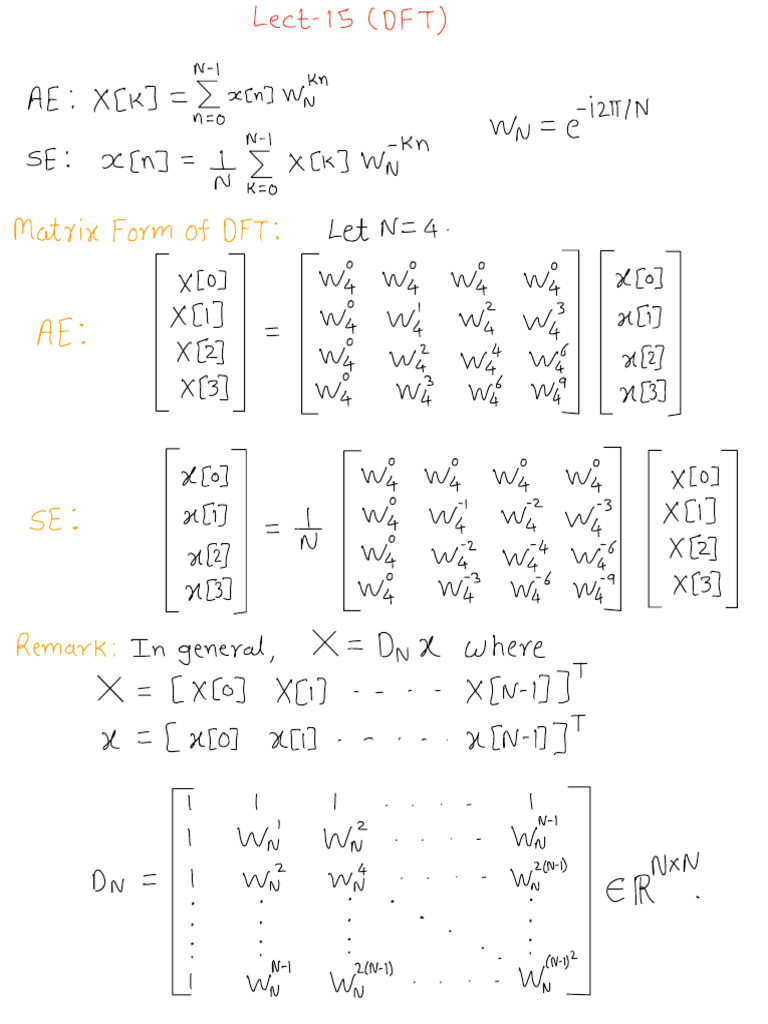 Lect-15 (DFT)
AE: X[k] = \sum_{n=0}^{N-1} x[n] W_N^{kn}
W_N = e^{-i2π/N}
SE: x[n] = \frac{1}{N} \sum_{k=0}^{N-1} X[k] W_N^{-kn}
Matrix Form of DFT: Let N=4.
AE: \begin{bmatrix} X[0] \\ X[1] \\ X[2] \\ X[3] \end{bmatrix} = \begin{bmatrix} W_4^0 & W_4^0 & W_4^0 & W_4^0 \\ W_4^0 & W_4^1 & W_4^2 & W_4^3 \\ W_4^0 & W_4^2 & W_4^4 & W_4^6 \\ W_4^0 & W_4^3 & W_4^6 & W_4^9 \end{bmatrix} \begin{bmatrix} x[0] \\ x[1] \\ x[2] \\ x[3] \end{bmatrix}
SE: \begin{bmatrix} x[0] \\ x[1] \\ x[2] \\ x[3] \end{bmatrix} = \frac{1}{N} \begin{bmatrix} W_4^0 & W_4^0 & W_4^0 & W_4^0 \\ W_4^0 & W_4^{-1} & W_4^{-2} & W_4^{-3} \\ W_4^0 & W_4^{-2} & W_4^{-4} & W_4^{-6} \\ W_4^0 & W_4^{-3} & W_4^{-6} & W_4^{-9} \end{bmatrix} \begin{bmatrix} X[0] \\ X[1] \\ X[2] \\ X[3] \end{bmatrix}
Remark: In general, X = D_N x where
X = [X[0] X[1] ..... X[N-1]]^T
x = [x[0] x[1] ...... x[N-1]]^T
D_N = \begin{bmatrix} 1 & 1 & 1 & .... & 1 \\ 1 & W_N^1 & W_N^2 & .... & W_N^{N-1} \\ 1 & W_N^2 & W_N^4 & .... & W_N^{2(N-1)} \\ \vdots & \vdots & \vdots & \ddots & \vdots \\ 1 & W_N^{N-1} & W_N^{2(N-1)} & .... & W_N^{(N-1)^2} \end{bmatrix} ∈ ℝ^{N×N}.